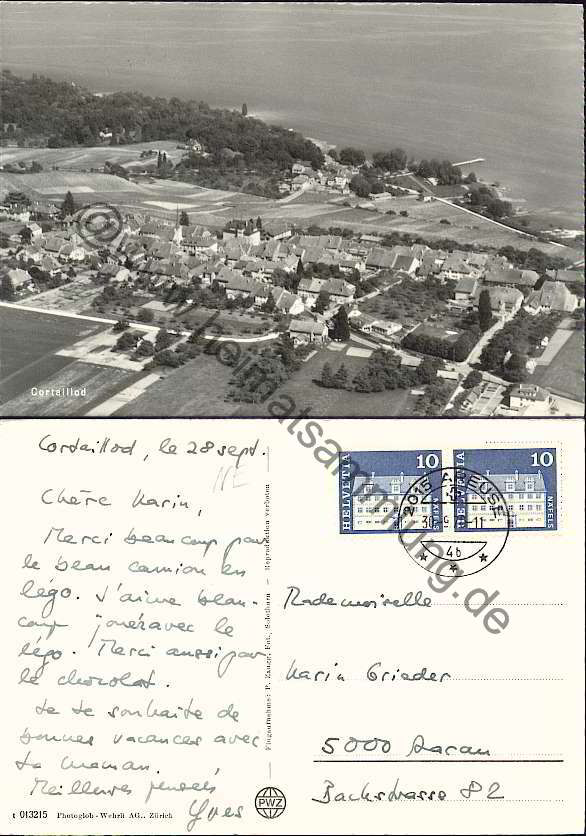 Cortaillod
© www.heimatsammlung.de
Cortaillod, le 28 sept.
NE
Chère Karin,
Merci beaucoup pour
le beau camion en
légo. J'aime beau-
coup jouer avec le
légo. Merci aussi pour
le chocolat.
Je te souhaite de
bonnes vacances avec
ta maman.
Meilleures pensées,
Yves
t 013215 Photoglob-Wehrli AG., Zürich
Flugaufnahme: P. Zaugg, Fot., Solothurn - Reproduktion verboten
PWZ
HELVETIA 10 NÄFELS
HELVETIA 10 NÄFELS
2015 AREUSE
30.-9.
-11
4b
Mademoiselle
Karin Grieder
5000 Aarau
Bachstrasse 82